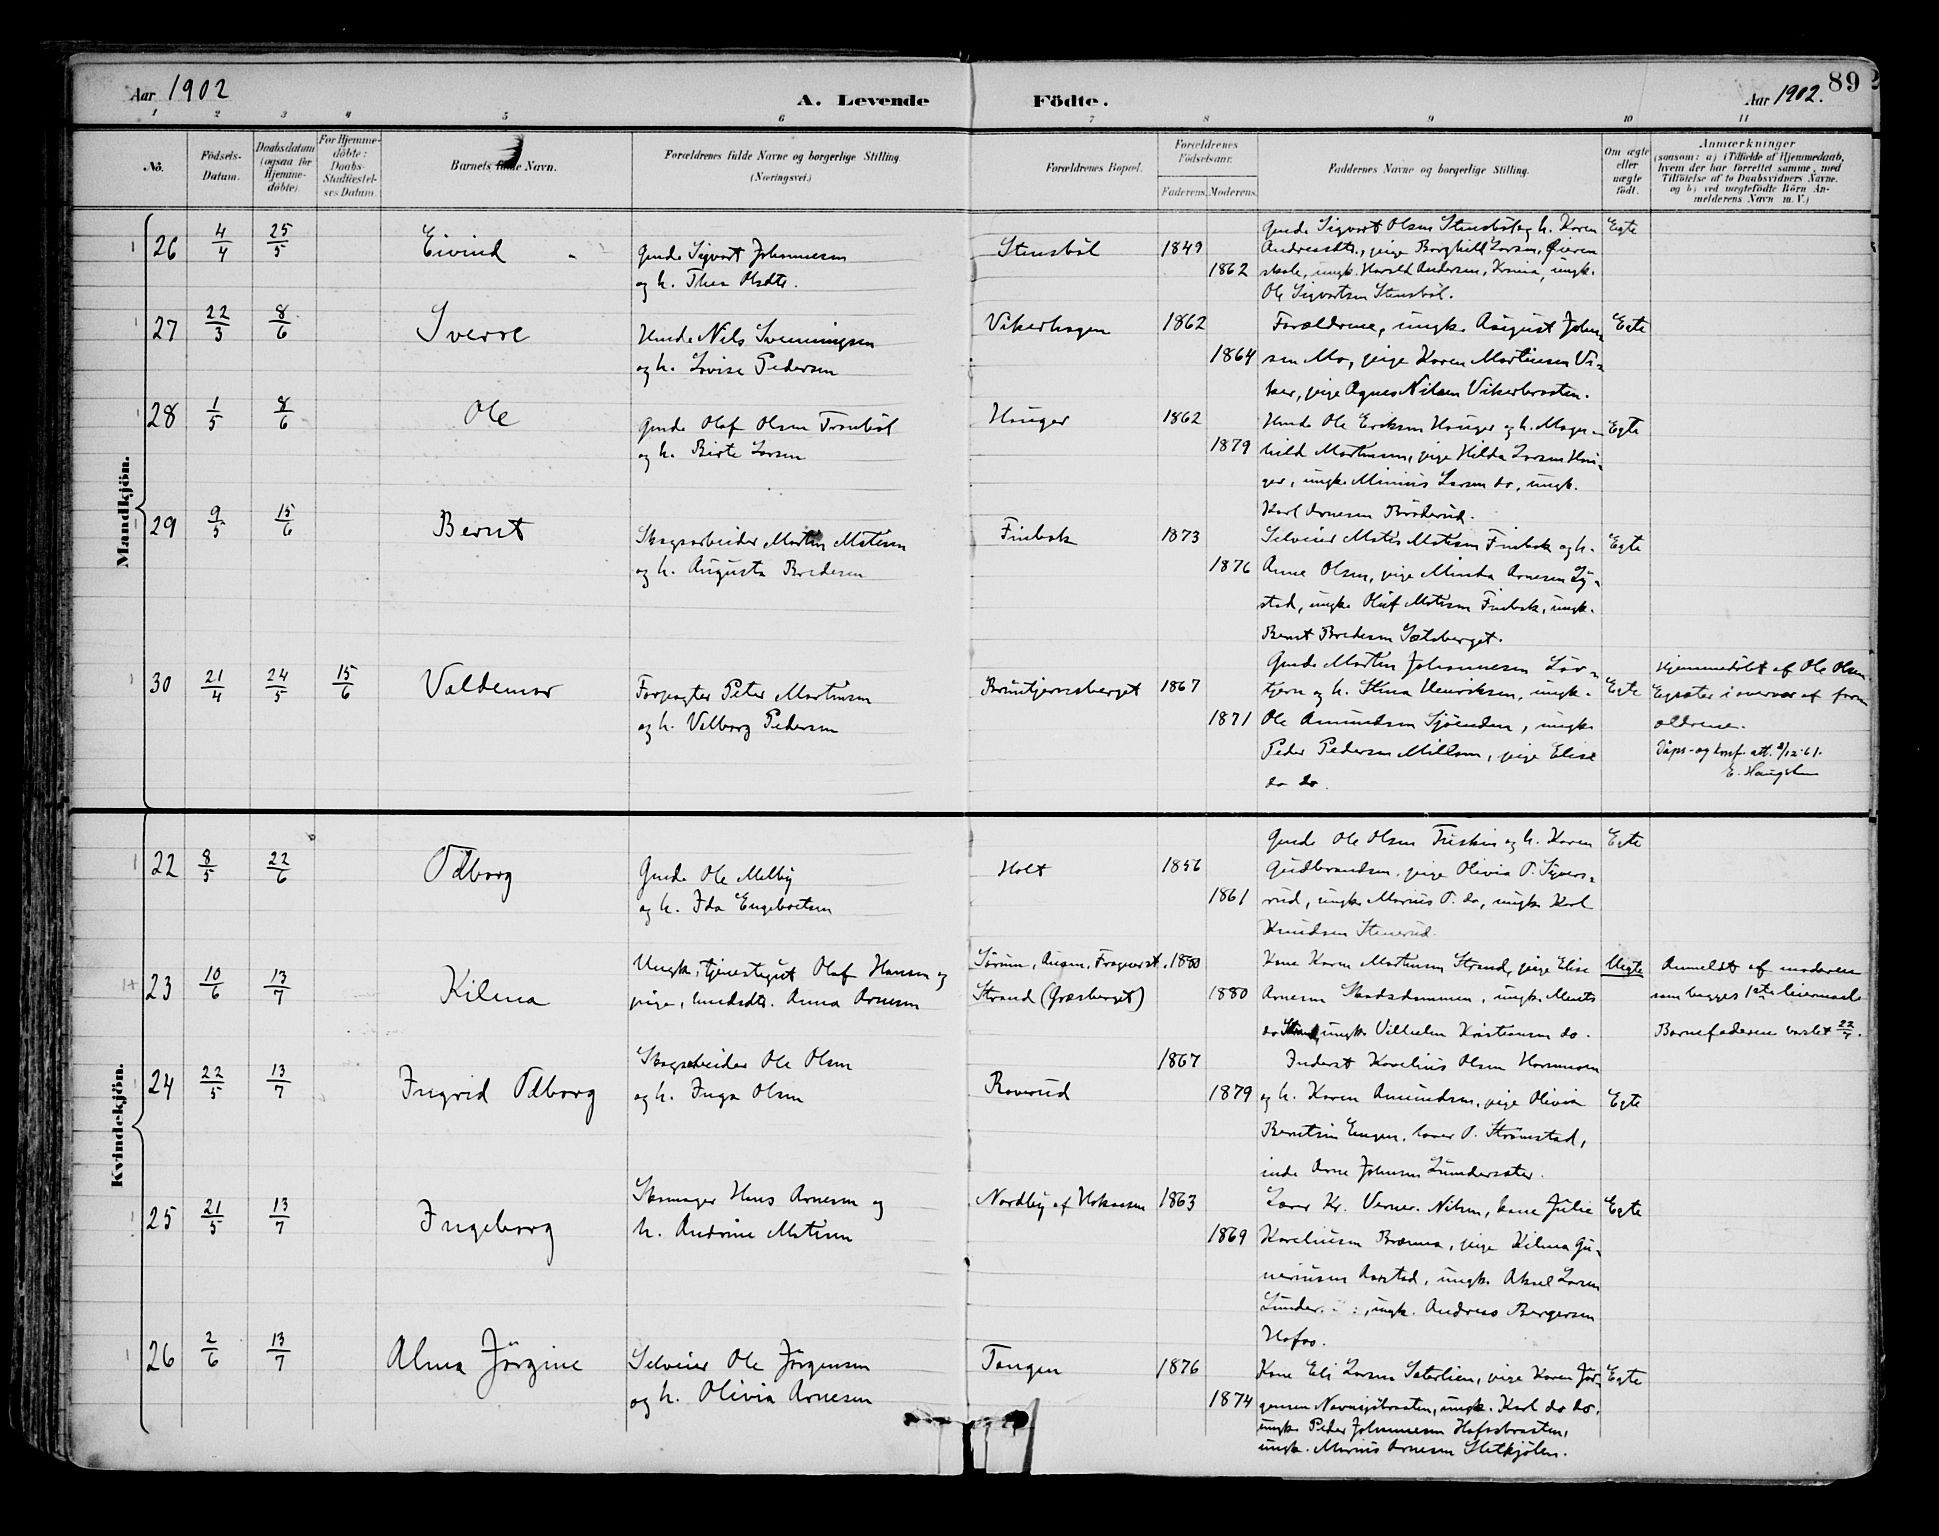 Aar 1902
A. Levende Födte.
Aar 1902.
89
1 2 3 4 5 6 7 8 9 10 11
No.
Födsels-Datum.
Daabsdatum (ogsaa for Hjemme-döbte).
For Hjemme-döbte: Daabs-Stadfæstel-ses Datum.
Barnets fulde Navn.
Forældrenes fulde Navne og borgerlige Stilling.
(Næringsvei.)
Forældrenes Bopæl.
Forældrenes Födselsaar.
Faderens. Moderens.
Faddernes Navne og borgerlige Stilling.
Om ægte eller uægte födt.
Anmærkninger
(saasom: a) i Tilfælde af Hjemmedaab,
hvem der har forrettet samme, med
Tilföielse af to Daabsvidners Navne.
og b) ved uægtefödte Börn An-
melderens Navn m. V.)
Mandkjön.
26 4/4 25/5 Eivind
Gmde Sigvart Johannesen
og h. Thea Olsdtr.
Stensböl 1849 1862
Gmde Sigvart Olsen Stensböl og h. Karen
Andreasdtr., pige Borghild Larsen, Øieren
skole, ungk. Harald Andersen, ungk.
Ole Sigvartsen Stensböl.
Egte
27 22/3 8/6 Sverre
Hmde Nils Svenningsen
og h. Lovise Pedersen
Vikerhagen 1862 1864
Forældrene, ungk. August Johan-
sen Mo, pige Karen Martinsen Vi-
ker, pige Agnes Nilsen Vikerbraaten.
Egte
28 1/5 8/6 Ole
Gmde Olaf Olsen Tranböl
og h. Birte Larsen
Hauger 1862 1879
Hmde Ole Eriksen Hauger og h. Magn-
hild Martinsen, pige Hilda Larsen Hau-
ger, ungk. Minius Larsen do, ungk.
Karl Arnesen Bröderud.
Egte
29 9/5 15/6 Bernt
Skogsarbeider Martin Matisen
og h. Augusta Bredesen
Finbak 1873 1876
Selveier Matis Matisen Finbak og h.
Anne Olsen, pige Minda Arnesen Ly-
stad, ungk. Oluf Matisen Finbak, ungk.
Bernt Bredesen Sætaberget.
Egte
30 21/4 24/5 15/6 Valdemar
Forpagter Peter Martinsen
og h. Valborg Pedersen
Bruntjernsberget 1867 1871
Gmde Martin Johannesen Löv-
tjern og h. Stina Henriksen, ungk.
Ole Amundsen Sjöenden, ungk.
Peder Pedersen Millom, pige Elise
do do.
Egte
Hjemmedöbt af Ole Olsen
Egsæter i overvær af foræ
ldrene.
Dåps- og konf. att. 2/12-61.
E. Haugslun
Kvindekjön.
22 8/5 22/6 Odborg
Gmde Ole Melby
og h. Ida Engebretsen
Holt 1856 1861
Gmde Ole Olsen Friskin og h. Karen
Gudbrandsen, pige Olivia P. Sigvers-
rud, ungk. Marius P. do, ungk. Karl
Knudsen Stenerud.
Egte
23 10/6 13/7 Kilma
Ungk., tjenestegut Olaf Hansen og
pige, hmdsdtr. Anna Arnesen
Sörum, Ausm., Fragnerst. 1880
Strand (Græsberget) 1880
Kone Karen Martinsen Strand, pige Elise
Arnesen Skadsdammen, ungk. Ments
do Strand, ungk. Vilhelm Kristiansen do.
Uegte
Anmeldt af moderen
som begges 1ste leiermaal.
Barnefaderen varslet 22/7.
24 22/5 13/7 Ingrid Odborg
Skogsarbeider Ole Olsen
og h. Inga Olsen
Roverud 1867 1879
Inderst Karelius Olsen Hammeren
og h. Karen Amundsen, pige Olivia
Berntsen Engen, lærer P. Strömstad,
inde Arne Johnsen Lundersæter.
Egte
25 21/5 13/7 Ingeborg
Skomager Hans Arnesen og
h. Andrine Matisen
Nordby af Hokaasen 1863 1869
Lærer Kr. Verner Nilsen, kone Julie
Kareliusen Brænna, pige Kilma Gu-
neriusen Aarstad, ungk. Aksel Larsen
Lunder, ungk. Andreas Bergersen
Hofos.
Egte
26 2/6 13/7 Alma Jörgine
Selveier Ole Jörgensen
og h. Olivia Arnesen
Tangen 1876 1874
Kone Eli Larsen Sæterlien, pige Karen Jör-
gensen ungk. Karl do do,
ungk. Peder Johannesen Hofosbraaten,
ungk. Marius Arnesen Sletkjölen.
Egte